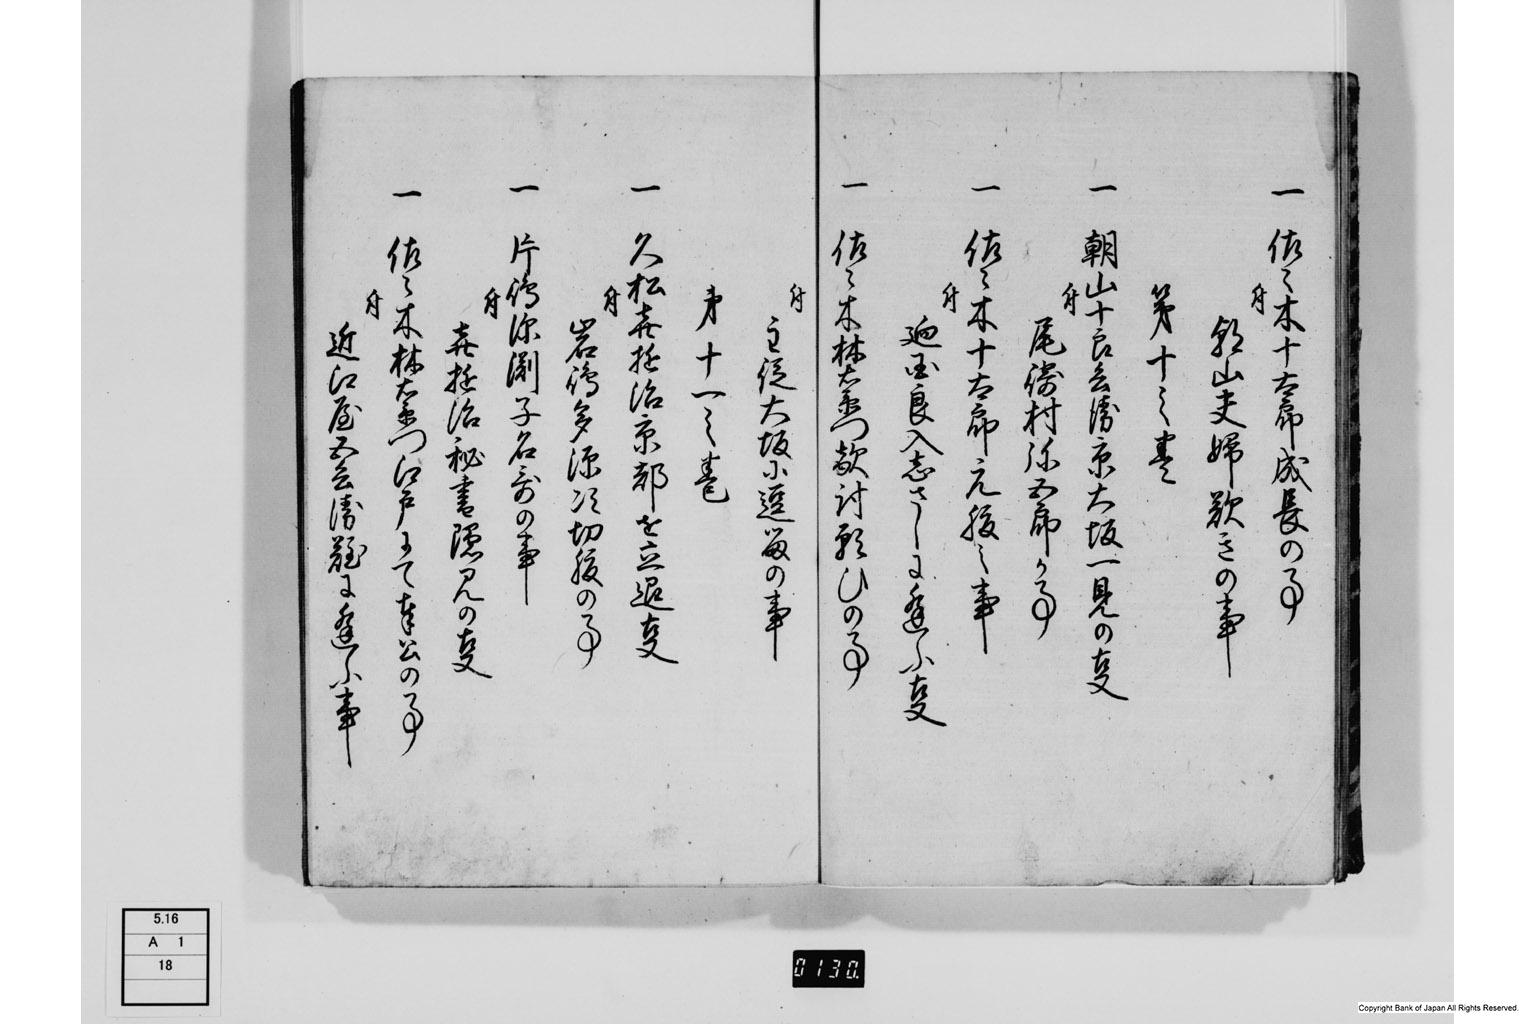 一 佐々木十太郎成長の事
并 朝山夫婦歎きの事
第十之巻
一 朝山十良兵衛京大坂一見の事
并 尾崎村弥五郎か事
一 佐々木十太郎元服之事
并 廻国良入志さしに逢ふ事
一 佐々木林左衛門敵討願ひの事
并 主従大坂小逗留の事
第十一之巻
一 久松喜推治京都を立退事
并 岩嶋多源次切腹の事
一 片嶋深淵子名誉の事
并 喜推治秘書隠見の事
一 佐々木林左衛門江戸にて奉公の事
并 近江屋五兵衛難に逢ふ事
5.16
A 1
18
0130.
Copyright Bank of Japan All Rights Reserved.